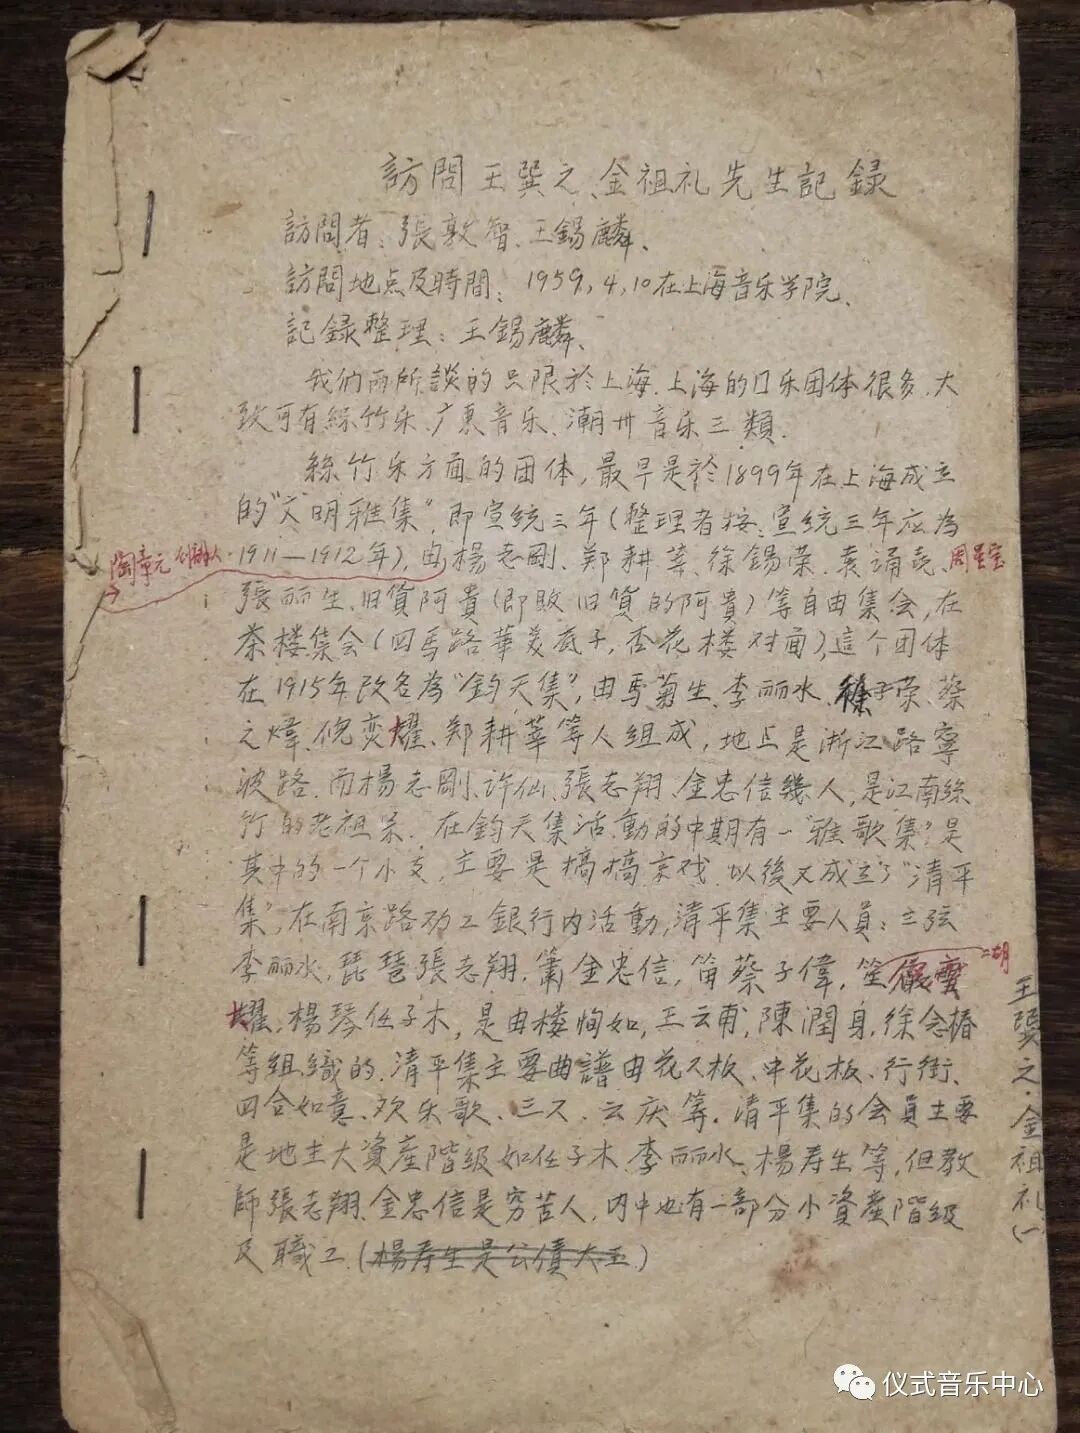 訪問王巽之、金祖礼先生記録
訪問者：張敦智、王錫麟、
訪問地点及時間：1959，4，10在上海音乐学院、
記録整理：王錫麟、
我们所談的只限於上海、上海的口乐团体很多、大
致可有絲竹乐、广东音乐、潮州音乐三類.
絲竹乐方面的团体，最早是於1899年在上海成立
的“文明雅集”，即宣統三年（整理者按：宣統三年应為
1911—1912年），由楊志剛、郑耕莘、徐錫荣、袁誦尧、周星宝
陶章元 创办人
張丽生、旧貨阿貴（即敗旧貨的阿貴）等自由集会，在
茶楼集会（四馬路華美底子，杏花楼对面），這个团体
在1915年改名為“鈞天集”，由馬菊生、李丽水、徐子荣、蔡
之煒、倪奕耀、郑耕莘等人組成，地点是浙江路寧
波路、而楊志剛、许仙、張志翔、金忠信幾人，是江南絲
竹的老祖宗. 在鈞天集活動的中期有一“雅歌集”，是
其中的一个小支，主要是搞搞京戏、以後又成立了“清平
集”，在南京路劝工銀行内活動，清平集主要人員：三弦
李丽水，琵琶張志翔，簫金忠信，笛蔡子偉，笙
二胡
耀，楊琴任子木，是由楼恂如，王云甫，陳潤身，徐念椿
等組織的、清平集主要曲譜由花又板、中花板、行街、
四合如意、欢乐歌、三六、云庆等. 清平集的会員主要
是地主大資產階級如任子木、李丽水、楊寿生等，但教
師張志翔、金忠信是穷苦人，内中也有一部分小資產階級
及職工、（楊寿生是公債大王）
王巽之·金祖礼（一）
仪式音乐中心